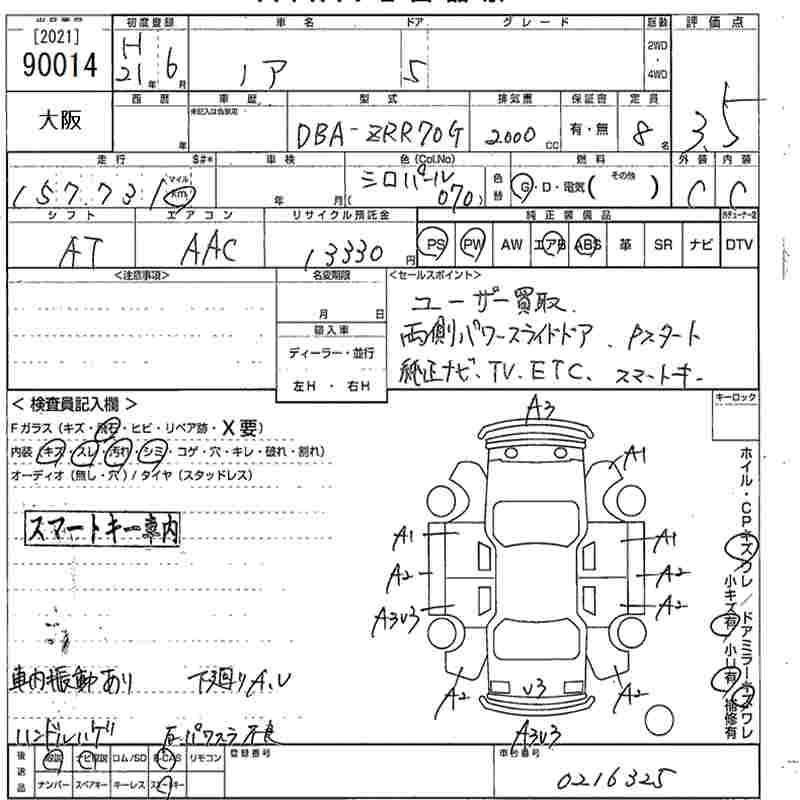 [2021]
90014
大阪
初度登録
H
21年 6月
車名
ノア
ドア
5
グレード
駆動
2WD
・
4WD
評価点
3.5
西暦
年
車歴
未記入は自家用
型式
DBA-ZRR70G
排気量
2000 CC
保証書
有・無
定員
8名
走行
S#*
157731
マイル
km
車検
年 月
色(Col.No)
シロパール
(070)
色替
燃料
G・D・電気( その他 )
外装
C
内装
C
シフト
AT
エアコン
AAC
リサイクル預託金
13330円
純正装備品
PS PW AW エアB ABS 革 SR ナビ DTV
<注意事項>
名変期限
月 日
輸入車
ディーラー・並行
左H ・ 右H
<セールスポイント>
ユーザー買取.
両側パワースライドドア、Pスタート
純正ナビ、TV、ETC、スマートキー
キーロック
< 検査員記入欄 >
Fガラス(キズ・飛石・ヒビ・リペア跡・X要)
内装(キズ・スレ・汚れ・シミ・コゲ・穴・キレ・破れ・割れ)
オーディオ(無し・穴)/タイヤ(スタッドレス)
スマートキー車内
車内振動あり 下廻りA,U
ハンドルハゲ 右パワスラ不良
A3
A1
A1 A1
A2 A2
A3U3 A2
A2 U3 A2
A3U3
ホイル・CPキズワレ/ドアミラーキズワレ
小キズ有/小U有/補修有
後送品
取説 ナビ取説 コム/SD B-CAS リモコン
ナンバー スペアキー キーレス スマートキー
登録番号
車台番号
0216325